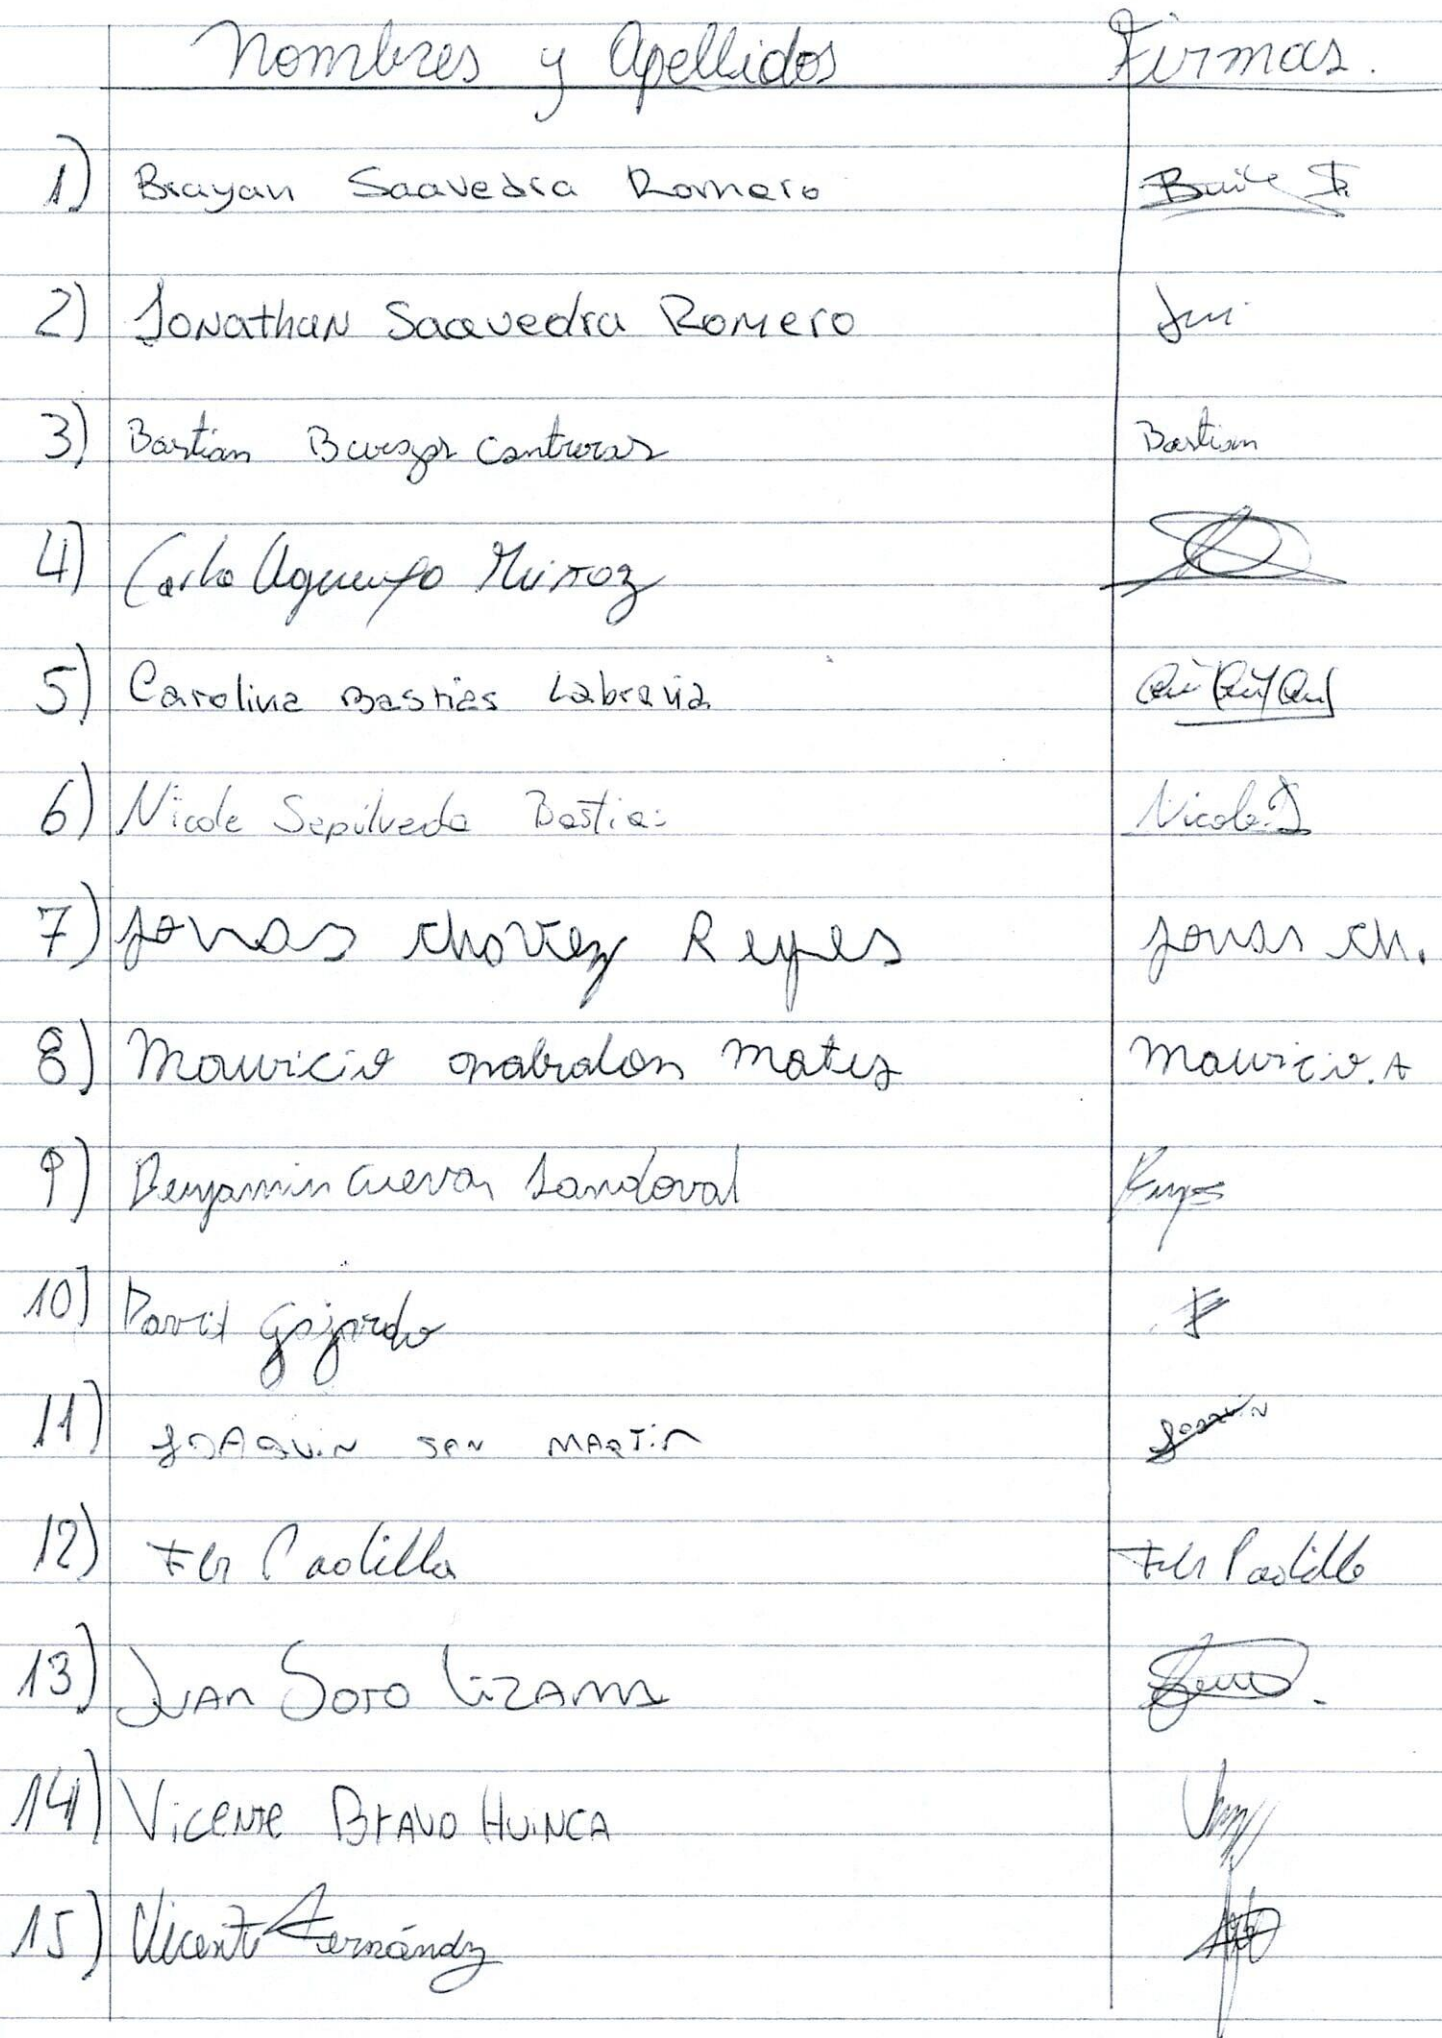 Nombres y Apellidos Firmas.
1) Brayan Saavedra Romero
2) Jonathan Saavedra Romero
3) Bastian Burgos Contreras Bastian
4) Carlo Muñoz
5) Carolina Bastias Labraña
6) Nicole Sepúlveda Bastias Nicole.S
7) Jonas Chavez Reyes Jonas Ch.
8) Mauricio Matus Mauricio.A
9) Benjamin Cuevas Sandoval
10) David Gajardo
11) JOAQUIN SAN MARTIN Joaquin
12) Padilla Padilla
13) JUAN SOTO LIZAMA
14) VICENTE BRAVO HUINCA
15) Vicente Fernández